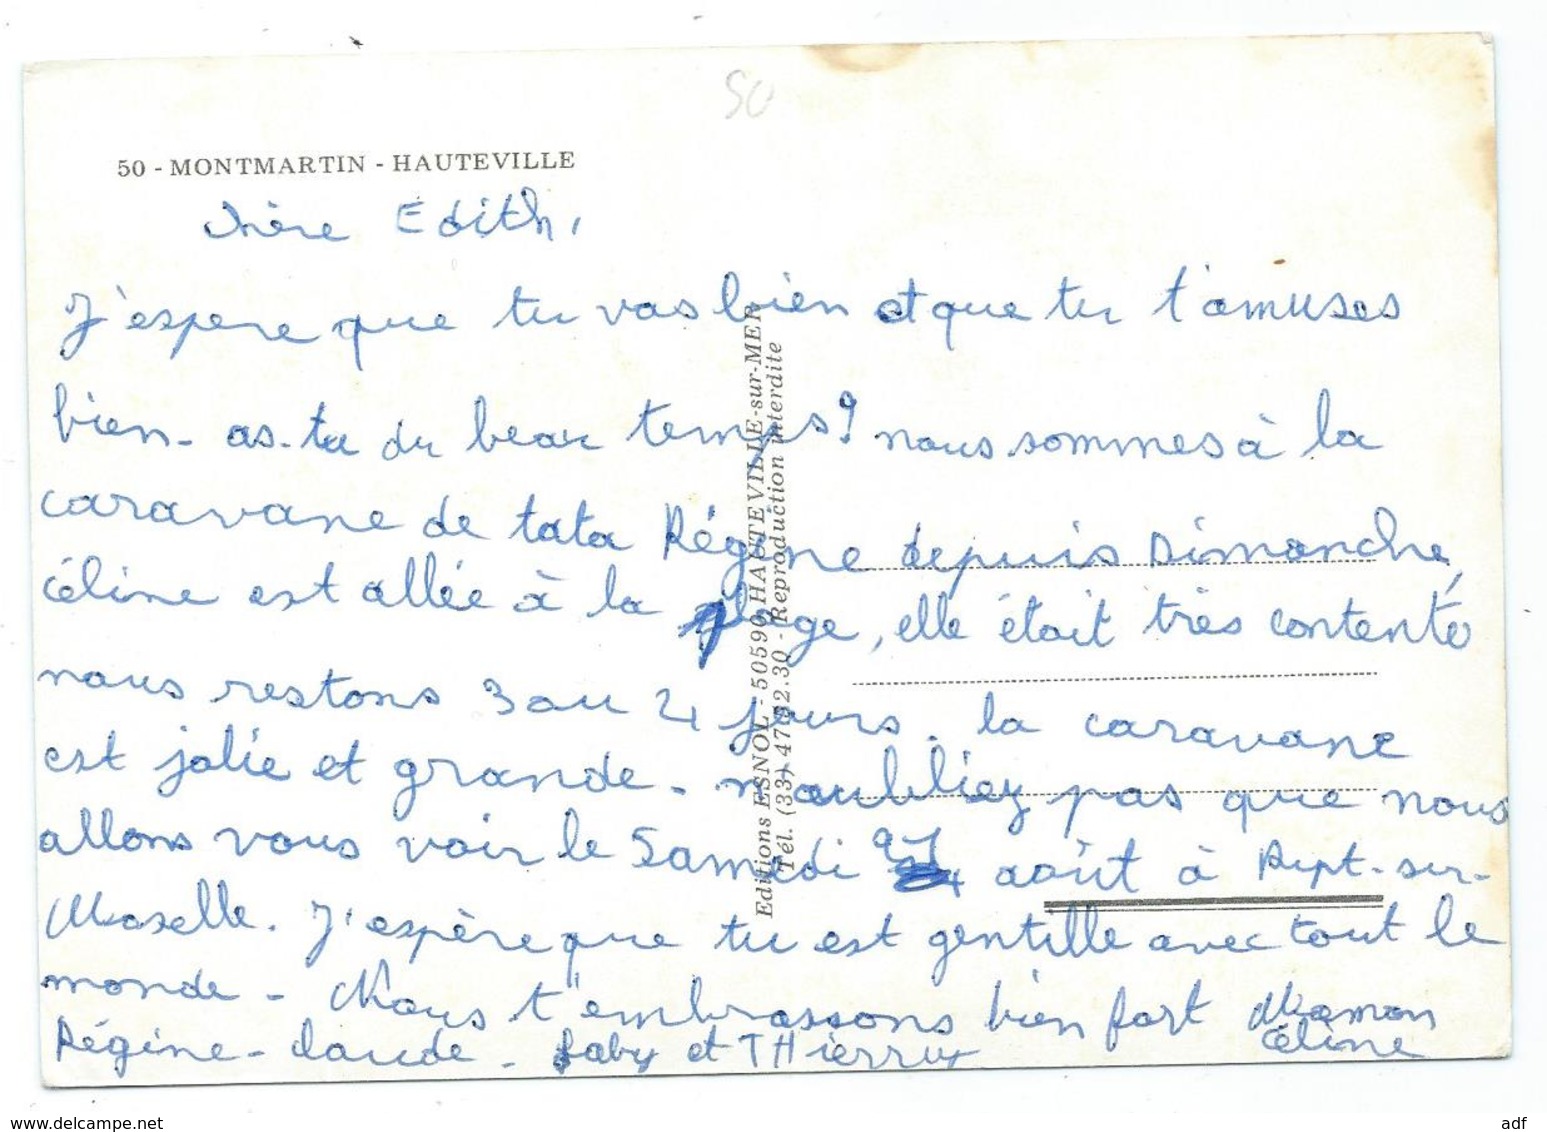 50
50 - MONTMARTIN - HAUTEVILLE
chère Edith,
J'espere que tu vas bien et que tu t'amuses
bien - as-tu du beau temps? nous sommes à la
caravane de tata Régine depuis Dimanche,
Céline est allée à la plage, elle était très contente
nous restons 3 ou 4 jours. la caravane
est jolie et grande - n'oubliez pas que nous
allons vous voir le Samedi août à Rupt-sur-
Moselle. J'espère que tu est gentille avec tout le
monde - Nous t'embrassons bien fort Maman
Régine - Claude - Gaby et THierry Céline
Editions ESNOL - 50590 HAUTEVILLE-sur-MER
Tél. (33) 47.52.30 - Reproduction interdite
www.delcampe.net
adf